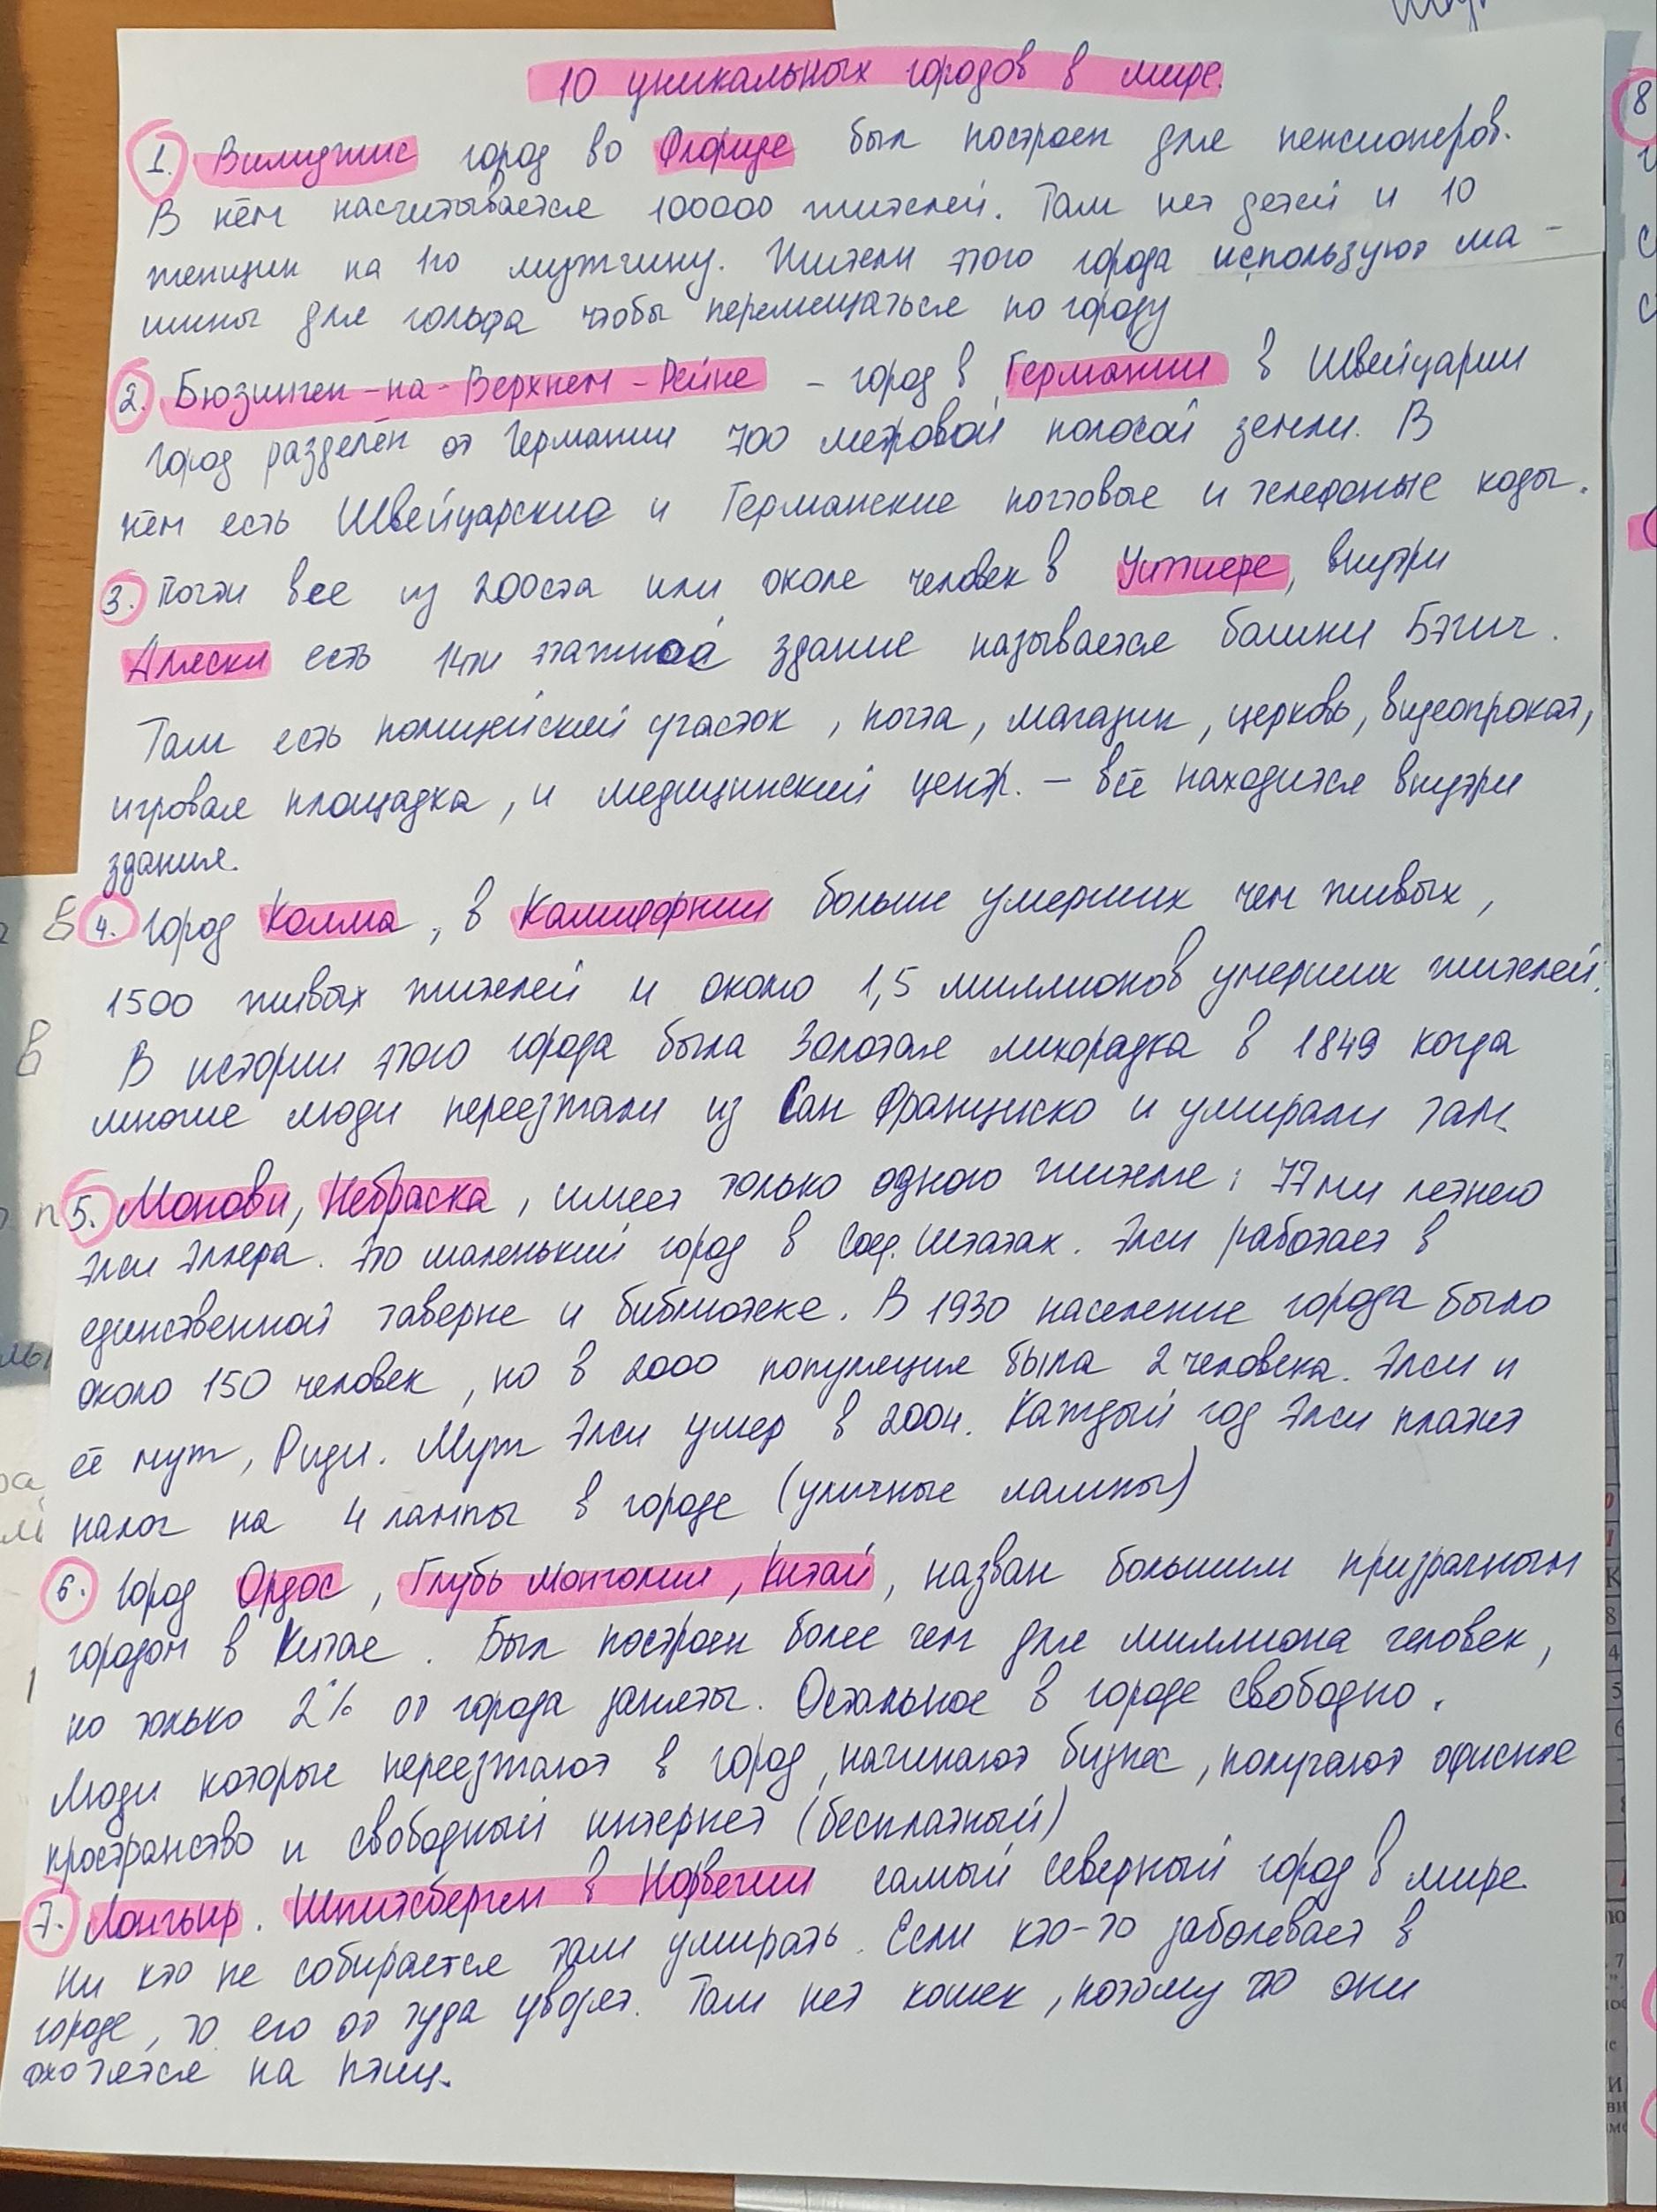 10 уникальных городов в мире.
1. Вилиджис город во Флориде был построен для пенсионеров.
В нём насчитывается 100000 жителей. Там нет детей и 10
женщин на 1го мужчину. Жители этого города используют ма-
шины для гольфа чтобы перемещаться по городу
2. Бюзинген-на-Верхнем-Рейне - город в Германии в Швейцарии
город разделён от Германии 700 метровой полосой земли. В
нём есть Швейцарские и Германские почтовые и телефоные коды.
3. Почти все из 200ста или около человек в Уиттиере, внутри
Аляски есть 14ти этажной здание называется башни Бэгич.
Там есть полицейский участок, почта, магазин, церковь, видеопрокат,
игровая площадка, и медицинский центр. - всё находится внутри
здания.
4. Город Колма, в Калифорнии больше умерших чем живых,
1500 живых жителей и около 1,5 миллионов умерших жителей.
В истории этого города была Золотая лихорадка в 1849 когда
многие люди переезжали из Сан Франциско и умирали там.
5. Монови, Небраска, имеет только одного жителя: 77ми летнего
Элси Эйлера. Это маленький город в Соед. Штатах. Элси работает в
единственной таверне и библиотеке. В 1930 население города было
около 150 человек, но в 2000 популяция была 2 человека. Элси и
её муж, Руди. Муж Элси умер в 2004. Каждый год Элси платит
налог на 4 лампы в городе (уличные лампы)
6. Город Ордос, Глубь Монголии, Китай, назван большим призрачным
городом в Китае. Был построен более чем для миллиона человек,
но только 2% от города заняты. Остальное в городе свободно.
Люди которые переезжают в город, начинают бизнес, получают офисное
пространство и свободный интернет (бесплатный)
7. Лонгьир. Шпитсберген в Норвегии самый северный город в мире.
Ни кто не собирается там умирать. Если кто-то заболевает в
городе, то его от туда увозят. Там нет кошек, потому то они
охотятся на птиц.
8